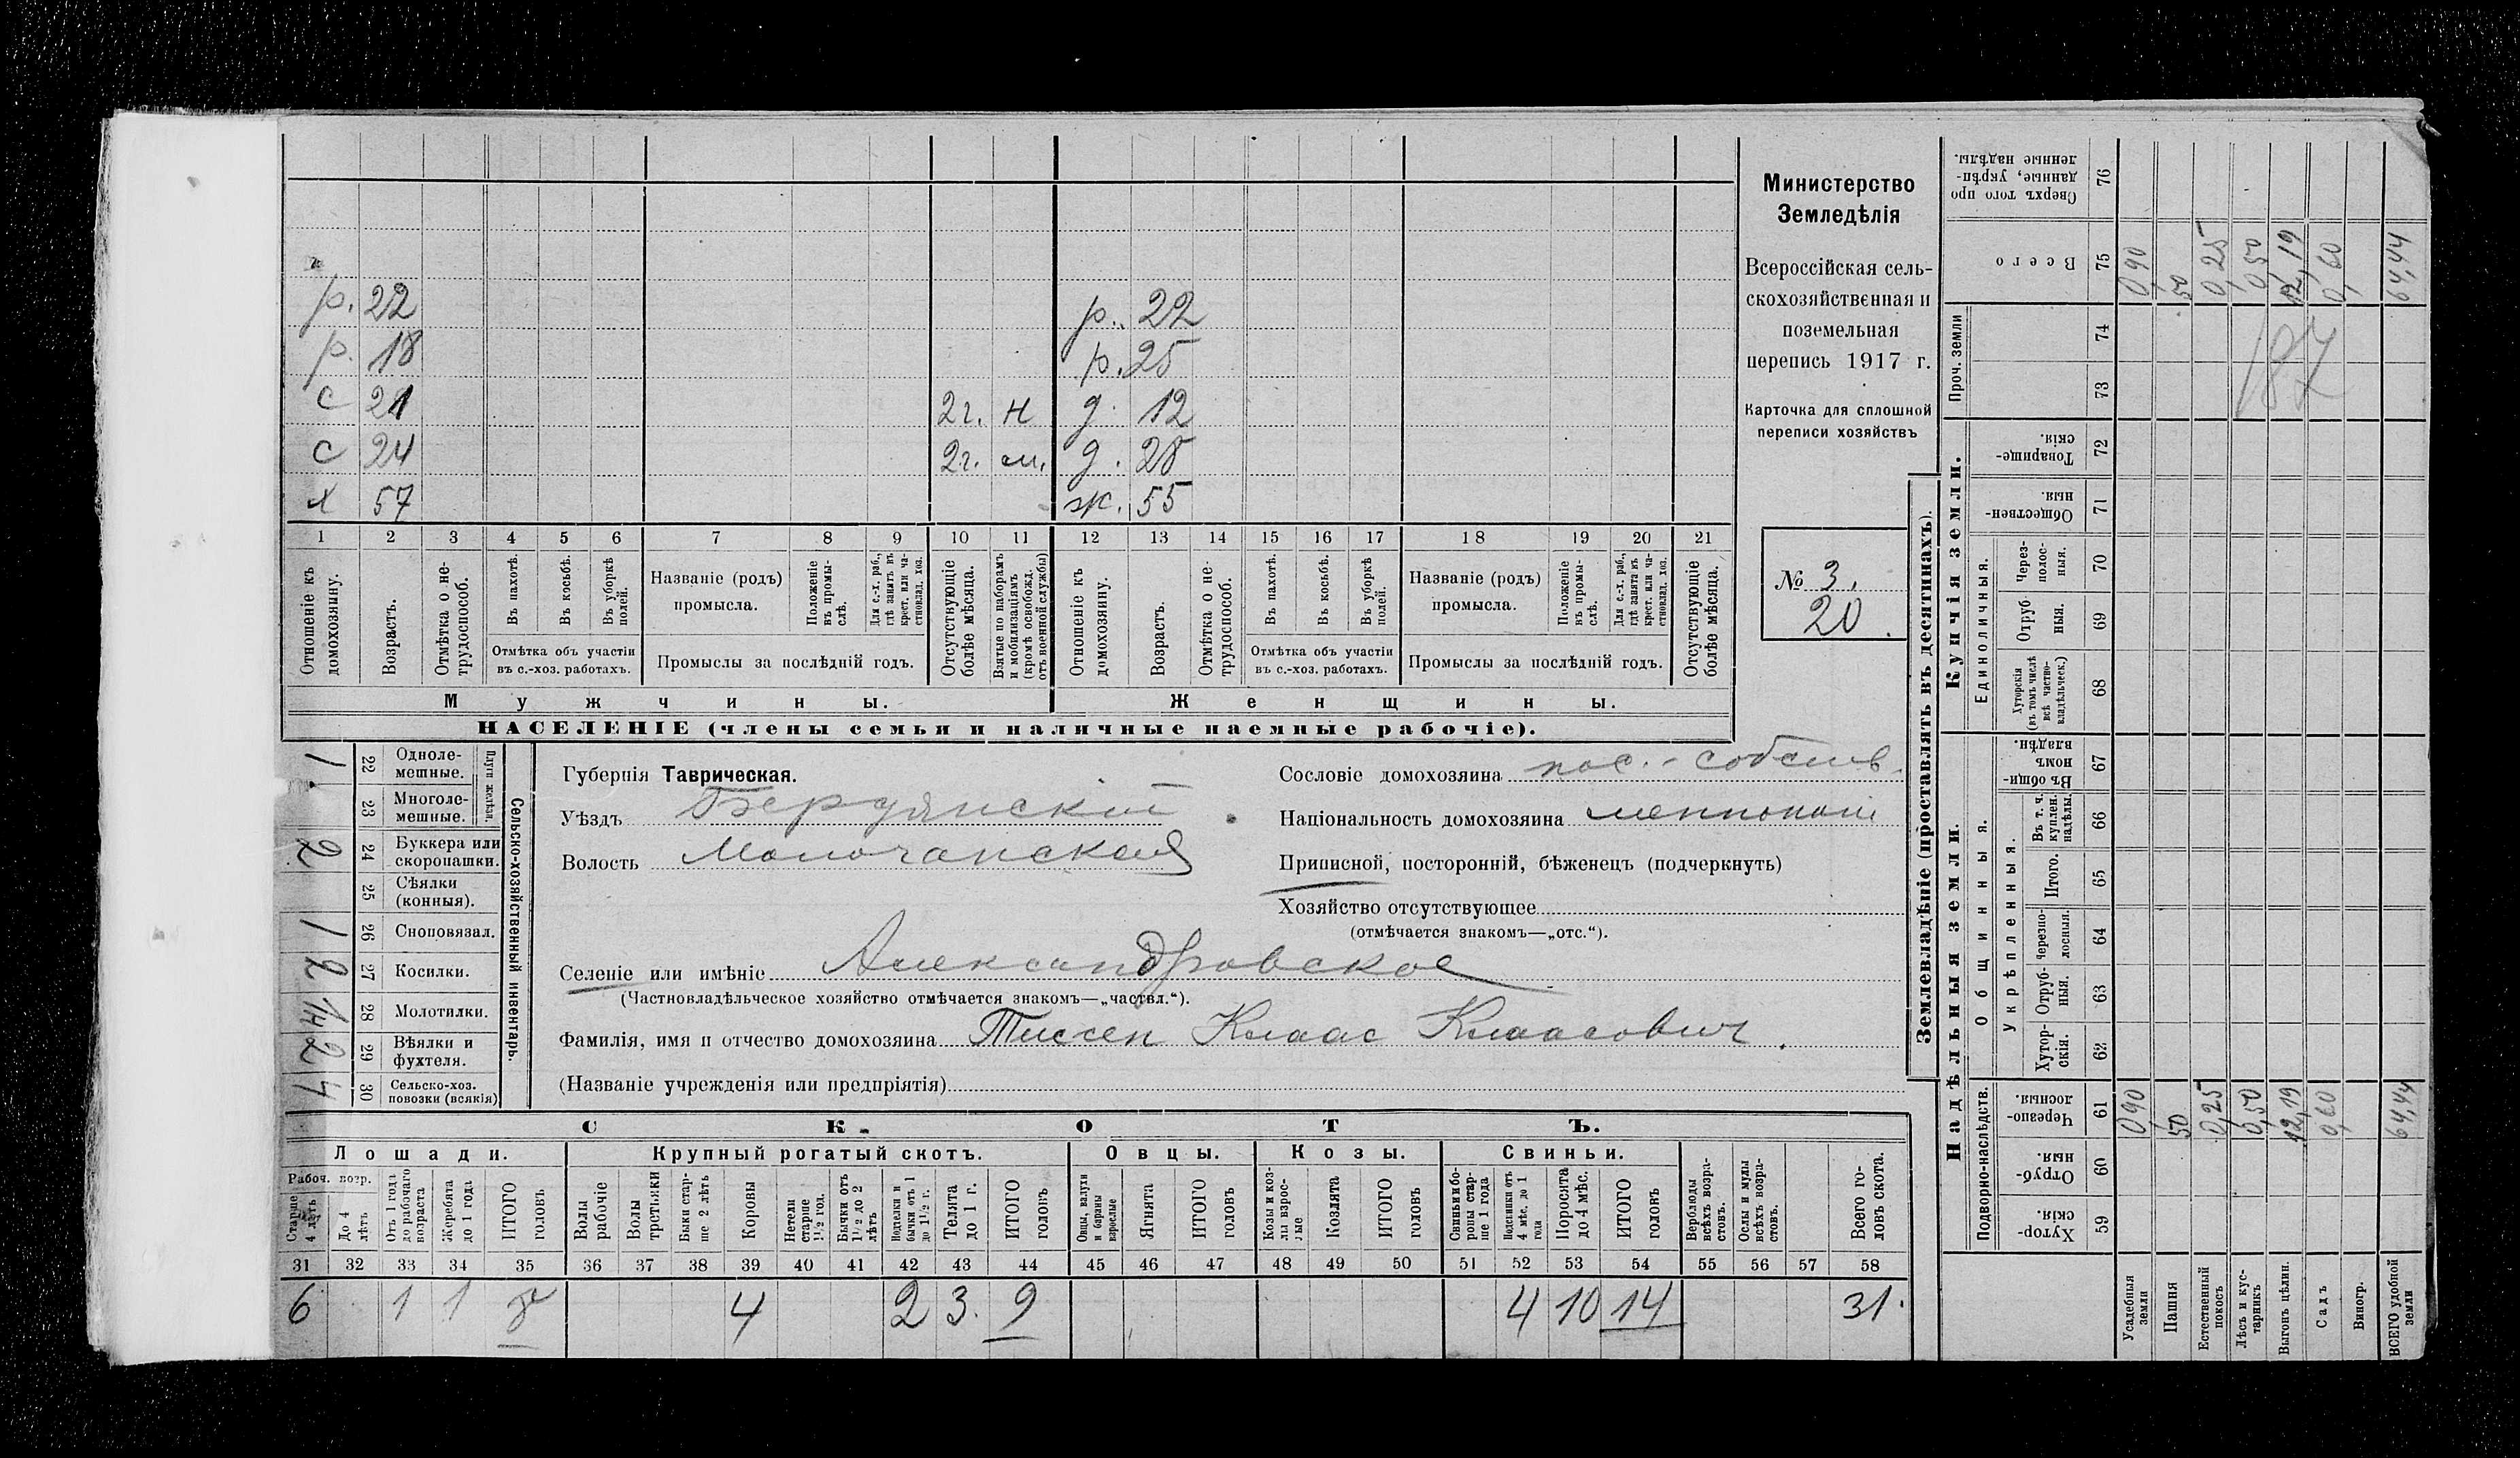 Министерство
Земледѣлія
Всероссійская сель-
скохозяйственная и
поземельная
перепись 1917 г.
Карточка для сплошной
переписи хозяйствъ
№ 3.
20.
р. 22 р. 22
р. 18 р. 25
с 21 2г. н д. 12
с 24 2г. м. д. 28
х 57 ж. 55
1 2 3 4 5 6 7 8 9 10 11 12 13 14 15 16 17 18 19 20 21
Отношеніе къ домохозяину.
Возрастъ.
Отмѣтка о не-трудоспособ.
Въ пахотѣ.
Въ косьбѣ.
Въ уборкѣ полей.
Отмѣтка объ участіи
въ с.-хоз. работахъ.
Названіе (родъ)
промысла.
Положеніе въ промы-слѣ.
Для с.-х. раб., гдѣ занятъ въ крест. или ча-стновлад. хоз.
Промыслы за послѣдній годъ.
Отсутствующіе болѣе мѣсяца.
Взятые по наборамъ и мобилизаціямъ (кромѣ освобожд. отъ военной службы)
Отношеніе къ домохозяину.
Возрастъ.
Отмѣтка о не-трудоспособ.
Въ пахотѣ.
Въ косьбѣ.
Въ уборкѣ полей.
Отмѣтка объ участіи
въ с.-хоз. работахъ.
Названіе (родъ)
промысла.
Положеніе въ промы-слѣ.
Для с.-х. раб., гдѣ занята въ крест. или ча-стновлад. хоз.
Промыслы за послѣдній годъ.
Отсутствующіе болѣе мѣсяца.
Мужчины. Женщины.
НАСЕЛЕНІЕ (члены семьи и наличные наемные рабочіе).
Сельско-хозяйственный инвентарь.
Плуги желѣзн.
1 22 Однолемешные.
23 Многолемешные.
2 24 Буккера или скоропашки.
25 Сѣялки (конныя).
1 26 Сноповязал.
2 27 Косилки.
28 Молотилки.
2 29 Вѣялки и фухтеля.
4 30 Сельско-хоз. повозки (всякія)
Губернія Таврическая.
Уѣздъ Бердянский
Волость Молочанская
Селеніе или имѣніе Александровское
(Частновладѣльческое хозяйство отмѣчается знакомъ—„частвл.“).
Фамилія, имя и отчество домохозяина Тиссен Клаас Клаасович.
(Названіе учрежденія или предпріятія)
Сословіе домохозяина пос.-собств.
Національность домохозяина меннонит
Приписной, посторонній, бѣженецъ (подчеркнуть)
Хозяйство отсутствующее
(отмѣчается знакомъ—„отс.“).
СКОТЪ.
Лошади. Крупный рогатый скотъ. Овцы. Козы. Свиньи.
Рабоч. возр.
Старше 4 лѣтъ
До 4 лѣтъ
Отъ 1 года до рабочаго возраста
Жеребята до 1 года
ИТОГО головъ
Волы рабочіе
Волы третьяки
Быки стар-ше 2 лѣтъ
Коровы
Нетели старше 1½ год.
Бычки отъ 1½ до 2 лѣтъ
Подтелки и бычки отъ 1 до 1½ г.
Телята до 1 г.
ИТОГО головъ
Овцы, валухи и бараны взрослые
Ягнята
ИТОГО головъ
Козы и коз-лы взрос-лые
Козлята
ИТОГО головъ
Свиньи бо-ровы стар-ше 1 года
Подсвинки отъ 4 мѣс. до 1 года
Поросята до 4 мѣс.
ИТОГО головъ
Верблюды всѣхъ возра-стовъ.
Ослы и мулы всѣхъ возра-стовъ.
Всего го-ловъ скота.
31 32 33 34 35 36 37 38 39 40 41 42 43 44 45 46 47 48 49 50 51 52 53 54 55 56 57 58
6 1 1 4 2 3. 9 4 10 14 31.
Землевладѣніе (проставлять въ десятинахъ).
Надѣльныя земли. Купчія земли.
Подворно-наслѣдств.
Общинныя.
Укрѣпленныя.
Единоличныя.
Проч. земли
59 Хутор-скія.
60 Отруб-ныя.
61 Черезпо-лосныя.
62 Хутор-скія.
63 Отруб-ныя.
64 Черезпо-лосныя.
65 Итого.
66 Въ т. ч. куплен. надѣлы.
67 Въ общин-номъ владѣн.
68 Хуторскія (въ томъ числѣ всѣ частно-владѣльческ.)
69 Отруб-ныя.
70 Через-полос-ныя.
71 Обществен-ныя.
72 Товарище-скія.
73
74
75 Всего
76 Сверхъ того про-данные, укрѣп-ленные надѣлы.
Усадебныя земли 0,90 0,90
Пашня 50 50
Естественный покосъ 0,25 0,25
Лѣсъ и кус-тарникъ 0,50 0,50
Выгонъ цѣлин. 12,19 12,19
Садъ 0,60 0,60
Виногр.
ВСЕГО удобной земли 64,44 64,44
187